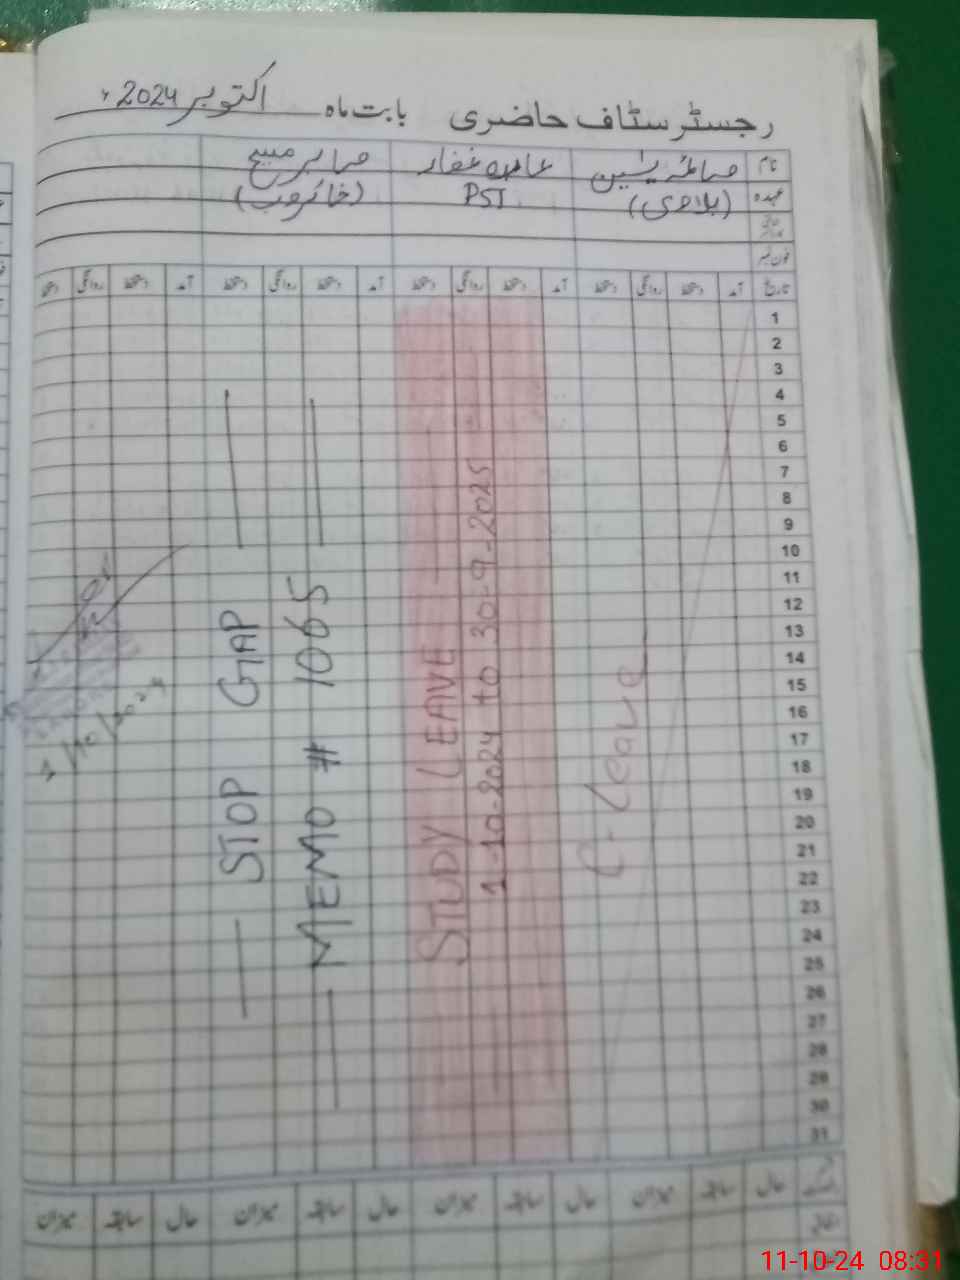 رجسٹر سٹاف حاضری بابت ماہ اکتوبر 2024ء
نام صائمہ یٰسین عابدہ غفار صابر مسیح
عہدہ PST (خاکروب)
فون نمبر
تاریخ آمد دستخط روانگی دستخط آمد دستخط روانگی دستخط آمد دستخط روانگی دستخط آمد دستخط روانگی دستخط
1
2
3
4
5
6
7
8
9
10
11
12
13
14
15
16
17
18
19
20
21
22
23
24
25
26
27
28
29
30
31
C-Leave
STUDY LEAVE
1-10-2024 to 30-9-2025
STOP GAP
MEMO # 1065
1/10/2024
حال سابقہ میزان حال سابقہ میزان حال سابقہ میزان حال سابقہ میزان
11-10-24 08:31